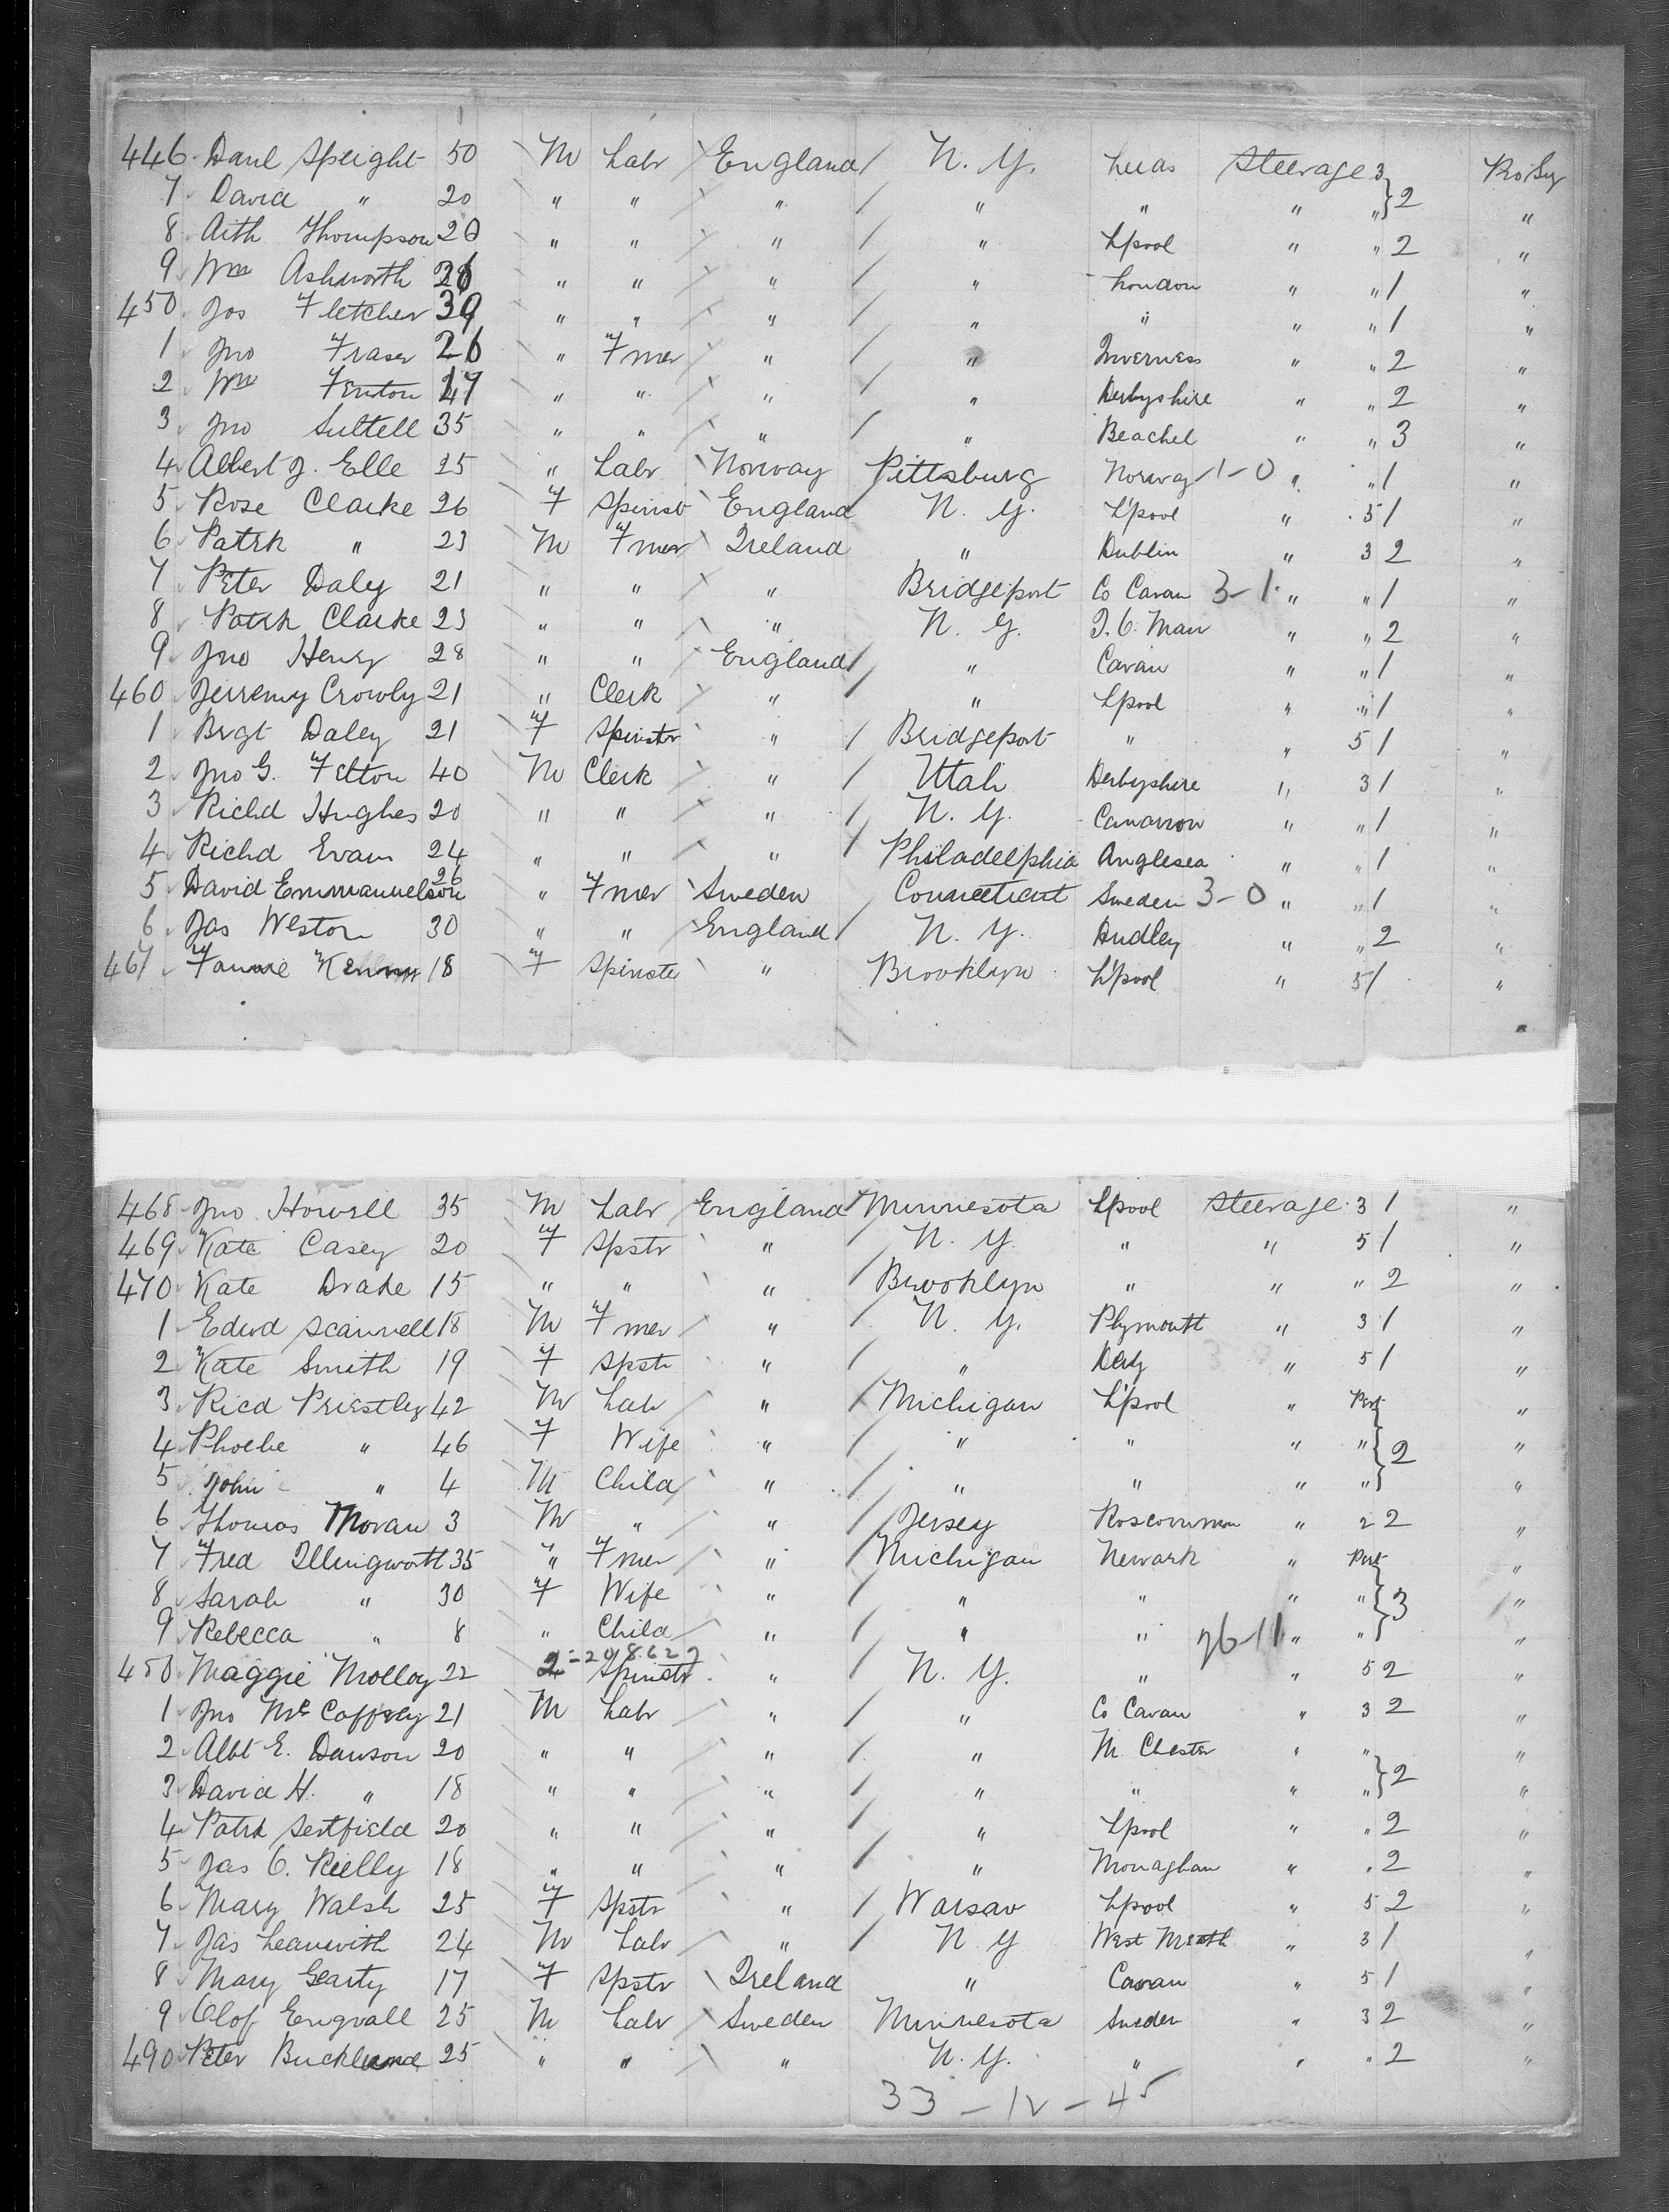 446 Danl Speight 50 M Labr England N. Y. Leeds Steerage 3
7 David " 20 " " " " " " " } 2 "
8 Aith Thompson 20 " " " " L'pool " " 2 "
9 Wm Ashworth 26 " " " " London " " 1 "
450 Jos Fletcher 39 " " " " " " " 1 "
1 Jno Fraser 26 " Fmer " " Inverness " " 2 "
2 Wm Fenton 47 " " " " Derbyshire " " 2 "
3 Jno Suttell 35 " " " " Beachel " " 3 "
4 Albert J. Elle 25 " Labr Norway Pittsburg Norway 1-0 " " 1 "
5 Rose Clarke 26 F Spinst England N. Y. L'pool " 5 1 "
6 Patrk " 23 M Fmer Ireland " Dublin " 3 2 "
7 Peter Daly 21 " " " Bridgeport Co Cavan 3-1 " " 1 "
8 Patrk Clarke 23 " " " N. Y. " " 2 "
9 Jno Henry 28 " " England " Cavan " " 1 "
460 Jerremy Crowly 21 " Clerk " " L'pool " " 1 "
1 Brgt Daley 21 F Spinstr " Bridgeport " " 5 1 "
2 Jno G. Felton 40 M Clerk " Utah Derbyshire " 3 1 "
3 Richd Hughes 20 " " " N. Y. " " 1 "
4 Richd Evans 24 " " " Philadelphia Anglesea " " 1 "
5 David Emmanuelson 26 " Fmer Sweden Connecticut Sweden 3-0 " " 1 "
6 Jas Weston 30 " " England N. Y. Dudley " " 2 "
467 Fannie 18 F Spinste " Brooklyn L'pool " 5 1 "
468 Jno Howell 35 M Labr England Minnesota L'pool Steerage 3 1 "
469 Kate Casey 20 F Spstr " N. Y. " " 5 1 "
470 Kate Drake 15 " " " Brooklyn " " " 2 "
1 Edwd Scannell 18 M Fmer " N. Y. Plymouth " 3 1 "
2 Kate Smith 19 F Spstr " " Derby " 5 1 "
3 Ricd Priestley 42 M Labr " Michigan L'pool " "
4 Phoebe " 46 F Wife " " " " " } 2 "
5 John " 4 M Child " " " " " "
6 Thomas Moran 3 M " " Jersey Roscommon " 2 2 "
7 Fred Illingworth 35 " Fmer " Michigan Newark " "
8 Sarah " 30 F Wife " " " " " } 3 "
9 Rebecca " 8 " Child " " " 26-11 " " "
480 Maggie Molloy 22 Spinstr " N. Y. " " 5 2 "
1 Jno McCaffrey 21 M Labr " " Co Cavan " 3 2 "
2 Albt E. Dawson 20 " " " " M. Chester " " "
3 David H. " 18 " " " " " " " } 2 "
4 Patrk Sertfield 20 " " " " L'pool " " 2 "
5 Jas O. Reilly 18 " " " " Monaghan " " 2 "
6 Mary Walsh 25 F Spstr " Warsaw L'pool " 5 2 "
7 Jas Leanwith 24 M Labr " N. Y West Meath " 3 1 "
8 Mary Gearty 17 F Spstr Ireland " Cavan " 5 1 "
9 Olof Engvall 25 M Labr Sweden Minnesota Sweden " 3 2 "
490 Peter Bucklund 25 " " " N. Y. " " " 2 "
33 - 12 - 45